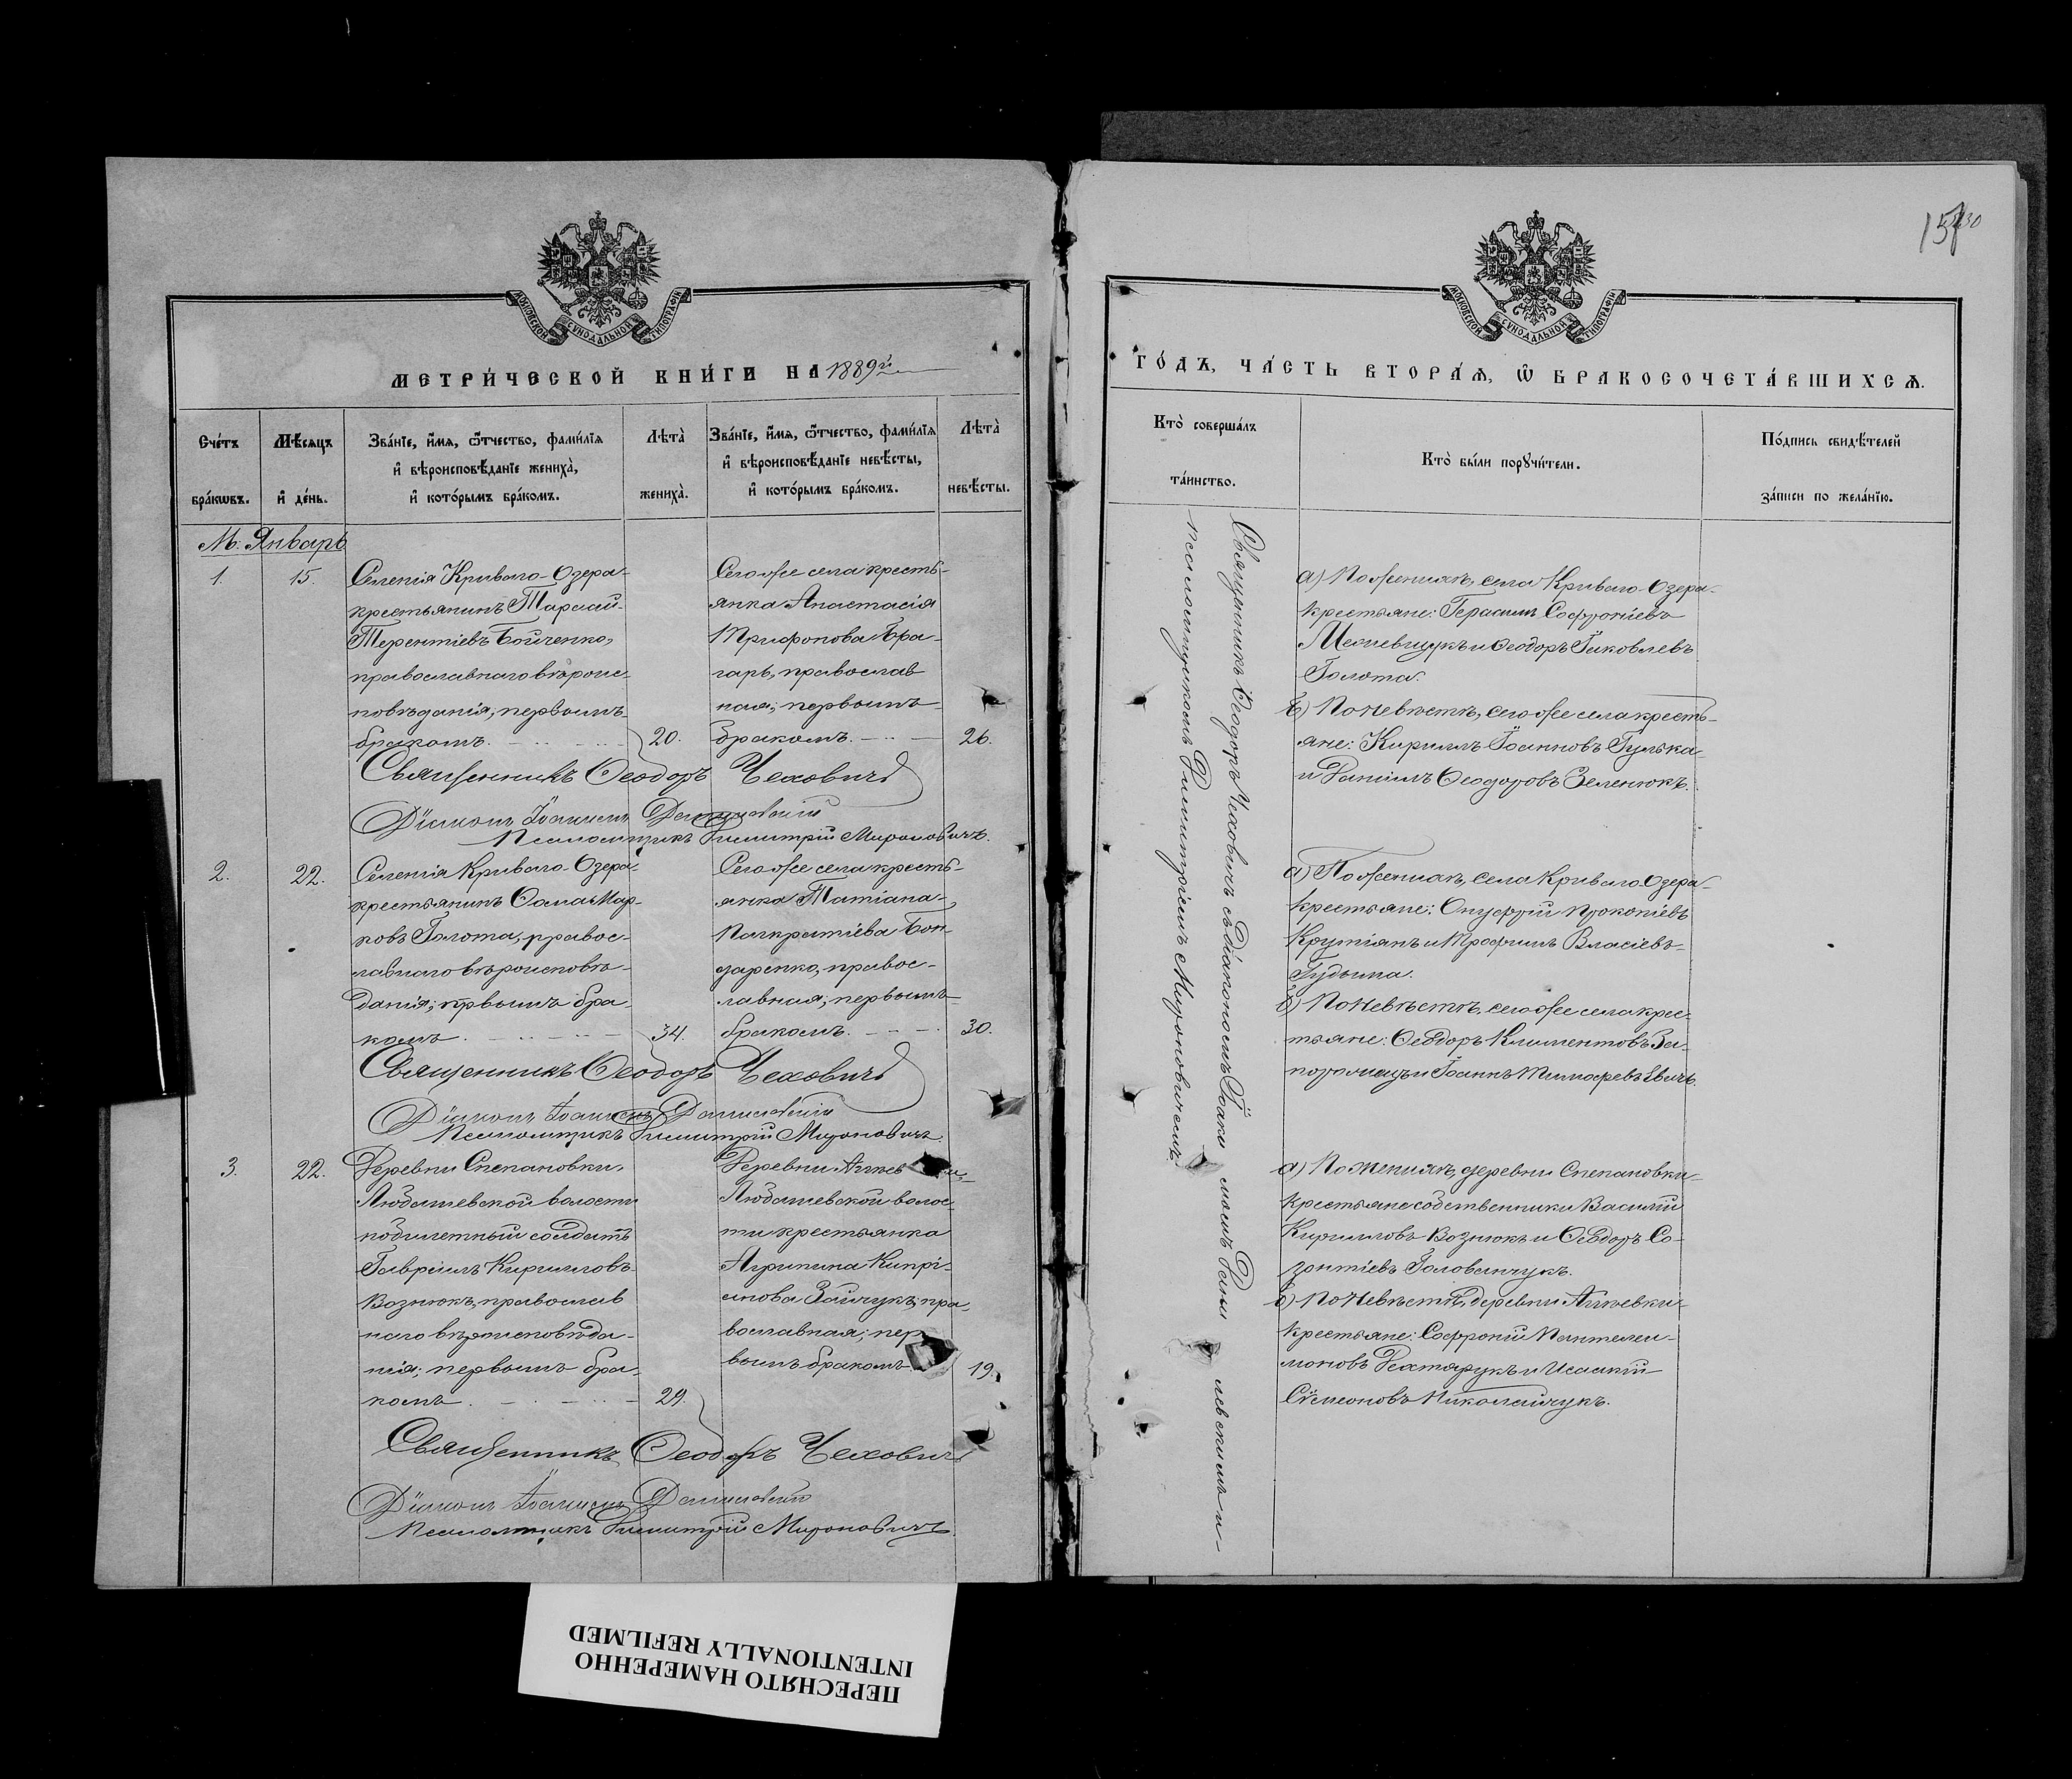 МОСКОВСКОЙ СѴНОДАЛЬНОЙ ТИПОГРАФІИ
МЕТРИ́ЧЕСКОЙ КНИ́ГИ НА 1889й
Сче́тъ бра́кѡвъ.
Мѣ́сяцъ и҆ де́нь.
Зва́нїе, и҆́мя, ѻ҆́тчество, фами́лїя
и҆ вѣроисповѣ́данїе жениха̀,
и҆ кото́рымъ бра́комъ.
Лѣта̀ жениха̀.
Зва́нїе, и҆́мя, ѻ҆́тчество, фами́лїя
и҆ вѣроисповѣ́данїе невѣ́сты,
и҆ кото́рымъ бра́комъ.
Лѣта̀ невѣ́сты.
М: Январь
1.
15.
Селенія Криваго-Озера
крестьянинъ Тарасій
Терентіевъ Бойченко,
православнаго вѣроис-
повѣданія; первымъ
бракомъ.
20.
Сего же села кресть-
янка Анастасія
Трифонова Бра-
гарь, православ
ная; первымъ
бракомъ.
26.
Священникъ Ѳеодоръ Чеховичъ
Діаконъ Іоаннъ
Псаломщикъ Димитрій Мироновичъ.
2.
22.
Селенія Криваго-Озера
крестьянинъ Ѳома Мар-
ковъ Голота, правос-
лавнаго вѣроисповѣ-
данія; первымъ бра-
комъ.
34.
Сего же села кресть-
янка Татіана
Панкратіева Бон-
даренко, правос-
лавная; первымъ
бракомъ.
30.
Священникъ Ѳеодоръ Чеховичъ
Діаконъ Іоаннъ
Псаломщикъ Димитрій Мироновичъ.
3.
22.
Деревни Степановки,
Любашевской волости
побилетный солдатъ
Гавріилъ Кирилловъ
Вознюкъ, православ
наго вѣроисповѣда-
нія; первымъ бра-
комъ.
29.
Деревни
Любашевской волос-
ти крестьянка
Агрипина Кипрі-
анова Зайчукъ, пра-
вославная; пер
вымъ бракомъ
19.
Священникъ Ѳеодоръ Чеховичъ
Діаконъ Іоаннъ
Псаломщикъ Димитрій Мироновичъ.
30
МОСКОВСКОЙ СѴНОДАЛЬНОЙ ТИПОГРАФІИ
ГО́ДЪ, ЧА́СТЬ ВТОРА́Я, Ѡ҆ БРАКОСОЧЕТА́ВШИХСЯ.
Кто̀ соверша́лъ
та́инство.
Кто̀ бы́ли порꙋчи́тели.
По́дпись свидѣ́телей
за́писи по жела́нїю.
Священникъ Ѳеодоръ Чеховичъ съ діакономъ и
псаломщикомъ Димитріемъ Мироновичемъ.
а) По женихѣ, села Криваго-Озера
крестьяне: Герасимъ Софроніевъ
и Ѳеодоръ Іаковлевъ
Голота.
б) По невѣстѣ, сего же села кресть-
яне: Кириллъ Іоанновъ Гулька
и Даніилъ Ѳеодоровъ Зеленюкъ.
а) По женихѣ, села Криваго-Озера
крестьяне: Онуфрій Прокопіевъ
Крутіянъ и Трофимъ Власіевъ
Гудыма.
б) По невѣстѣ, сего же села крес-
тьяне: Ѳеодоръ Климентовъ За-
порожецъ и Іоаннъ Тимофеевъ
а) По женихѣ, деревни Степановки
крестьяне собственники Василій
Кирилловъ Вознюкъ и Ѳеодоръ Со-
зонтіевъ Голованчукъ.
б) По невѣстѣ, деревни
крестьяне: Софроній Пантелеи-
моновъ Дехтярукъ и Исаакій
Сѵмеоновъ Николайчукъ.
ПЕРЕСНЯТО НАМЕРЕННО
INTENTIONALLY REFILMED